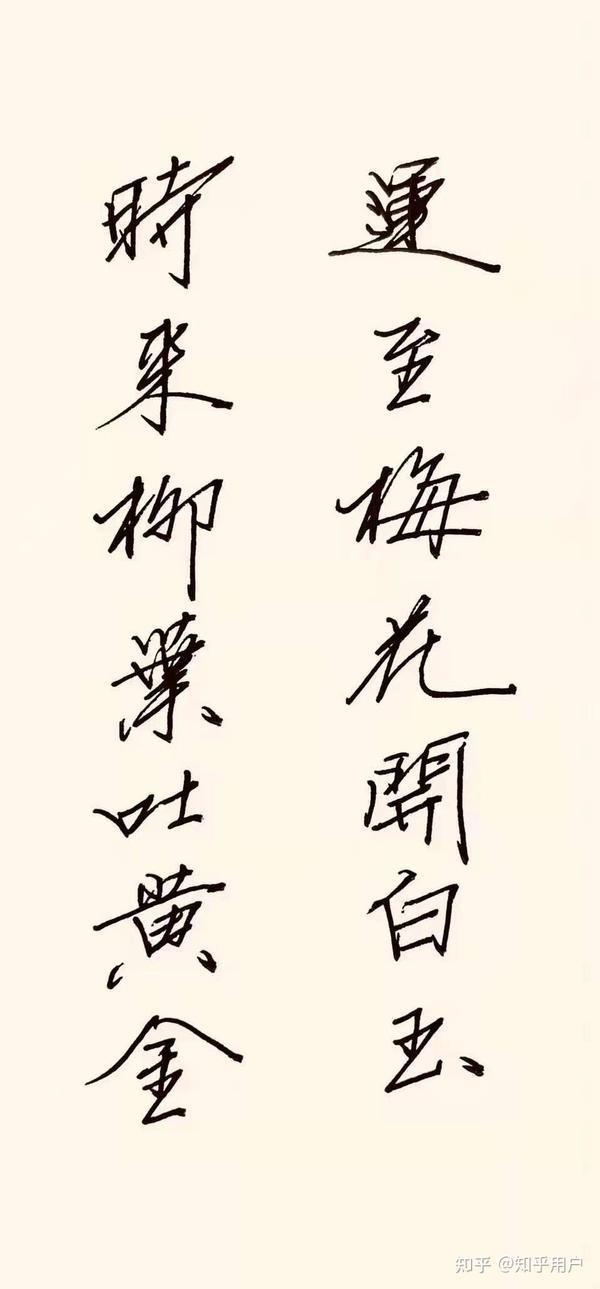 運至梅花開白玉
時来柳葉吐黄金
知乎 @知乎用户